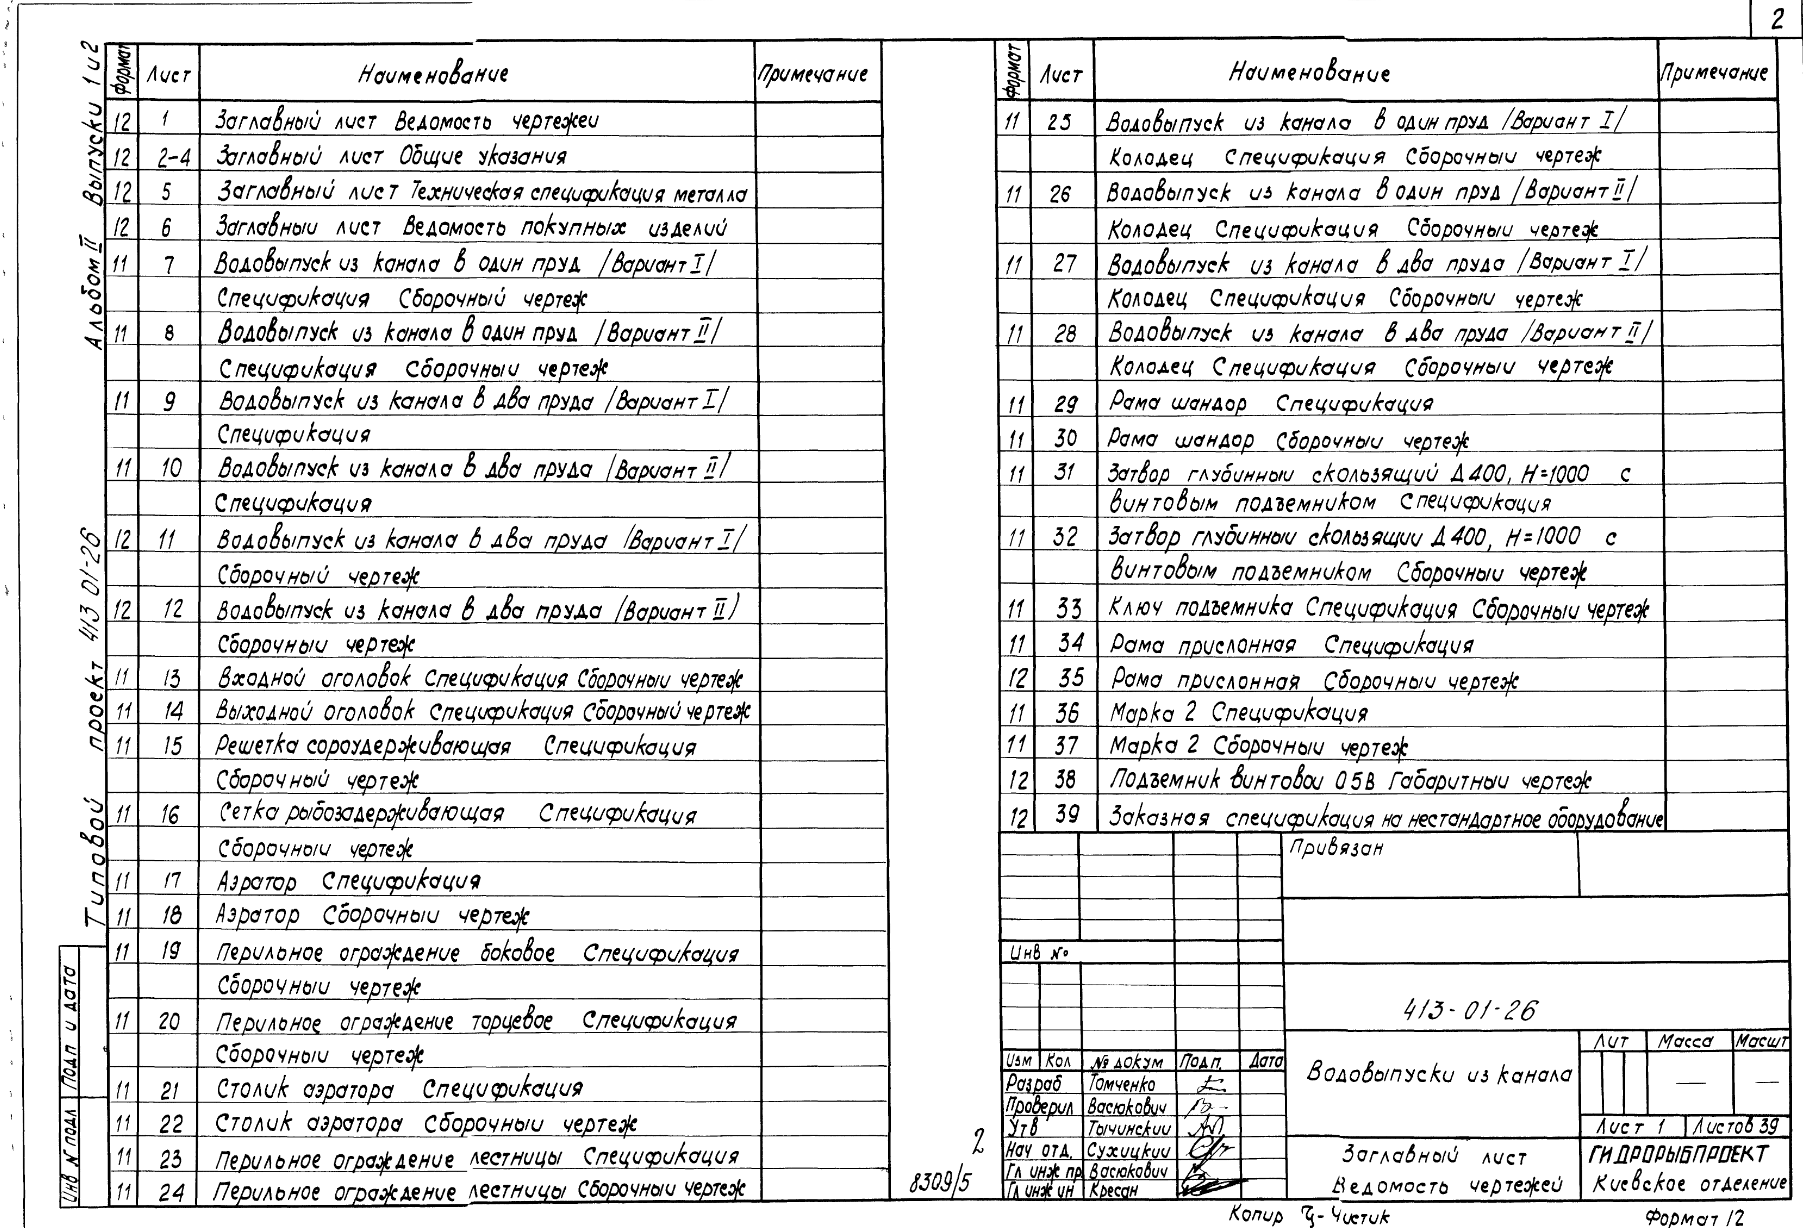 2
Альбом II Выпуски 1 и 2
Типовой проект 413 01-26
Формат Лист Наименование Примечание
12 1 Заглавный лист Ведомость чертежеи
12 2-4 Заглавный лист Общие указания
12 5 Заглавный лист Техническая спецификация металла
12 6 Заглавныи лист Ведомость покупных изделий
11 7 Водовыпуск из канала в один пруд /Вариант I/
Спецификация Сборочный чертеж
11 8 Водовыпуск из канала в один пруд /Вариант II/
Спецификация Сборочныи чертеж
11 9 Водовыпуск из канала в два пруда /Вариант I/
Спецификация
11 10 Водовыпуск из канала в два пруда /Вариант II/
Спецификация
12 11 Водовыпуск из канала в два пруда /Вариант I/
Сборочный чертеж
12 12 Водовыпуск из канала в два пруда /Вариант II/
Сборочныи чертеж
11 13 Входной оголовок Спецификация Сборочныи чертеж
11 14 Выходной оголовок Спецификация Сборочный чертеж
11 15 Решетка сороудерживающая Спецификация
Сборочный чертеж
11 16 Сетка рыбозадерживающая Спецификация
Сборочныи чертеж
11 17 Аэратор Спецификация
11 18 Аэратор Сборочныи чертеж
11 19 Перильное ограждение боковое Спецификация
Сборочныи чертеж
11 20 Перильное ограждение торцевое Спецификация
Сборочныи чертеж
11 21 Столик аэратора Спецификация
11 22 Столик аэратора Сборочныи чертеж
11 23 Перильное ограждение лестницы Спецификация
11 24 Перильное ограждение лестницы Сборочныи чертеж
Подп и дата
Инв N подл
2
8309/5
Формат Лист Наименование Примечание
11 25 Водовыпуск из канала в один пруд /Вариант I/
Колодец Спецификация Сборочныи чертеж
11 26 Водовыпуск из канала в один пруд /Вариант II/
Колодец Спецификация Сборочныи чертеж
11 27 Водовыпуск из канала в два пруда /Вариант I/
Колодец Спецификация Сборочныи чертеж
11 28 Водовыпуск из канала в два пруда /Вариант II/
Колодец Спецификация Сборочныи чертеж
11 29 Рама шандор Спецификация
11 30 Рама шандор Сборочныи чертеж
11 31 Затвор глубинныи скользящий Д 400, Н=1000 с
винтовым подъемником Спецификация
11 32 Затвор глубинныи скользящии Д 400, Н=1000 с
винтовым подъемником Сборочныи чертеж
11 33 Ключ подъемника Спецификация Сборочный чертеж
11 34 Рама прислонная Спецификация
12 35 Рама прислонная Сборочныи чертеж
11 36 Марка 2 Спецификация
11 37 Марка 2 Сборочныи чертеж
12 38 Подъемник винтовои 05В Габаритныи чертеж
12 39 Заказная спецификация на нестандартное оборудование
Привязан
Инв №
413-01-26
Изм Кол № докум Подп. Дата
Разраб Томченко
Проверил Васюкович
Утв Тычинскии
Нач отд. Сухицкии
Гл инж пр Васюкович
Гл инж ин Кресан
Водовыпуски из канала
Лит Масса Масшт
— —
Лист 1 Листов 39
Заглавный лист
Ведомость чертежей
ГИДРОРЫБПРОЕКТ
Киевское отделение
Копир Чистик
Формат 12